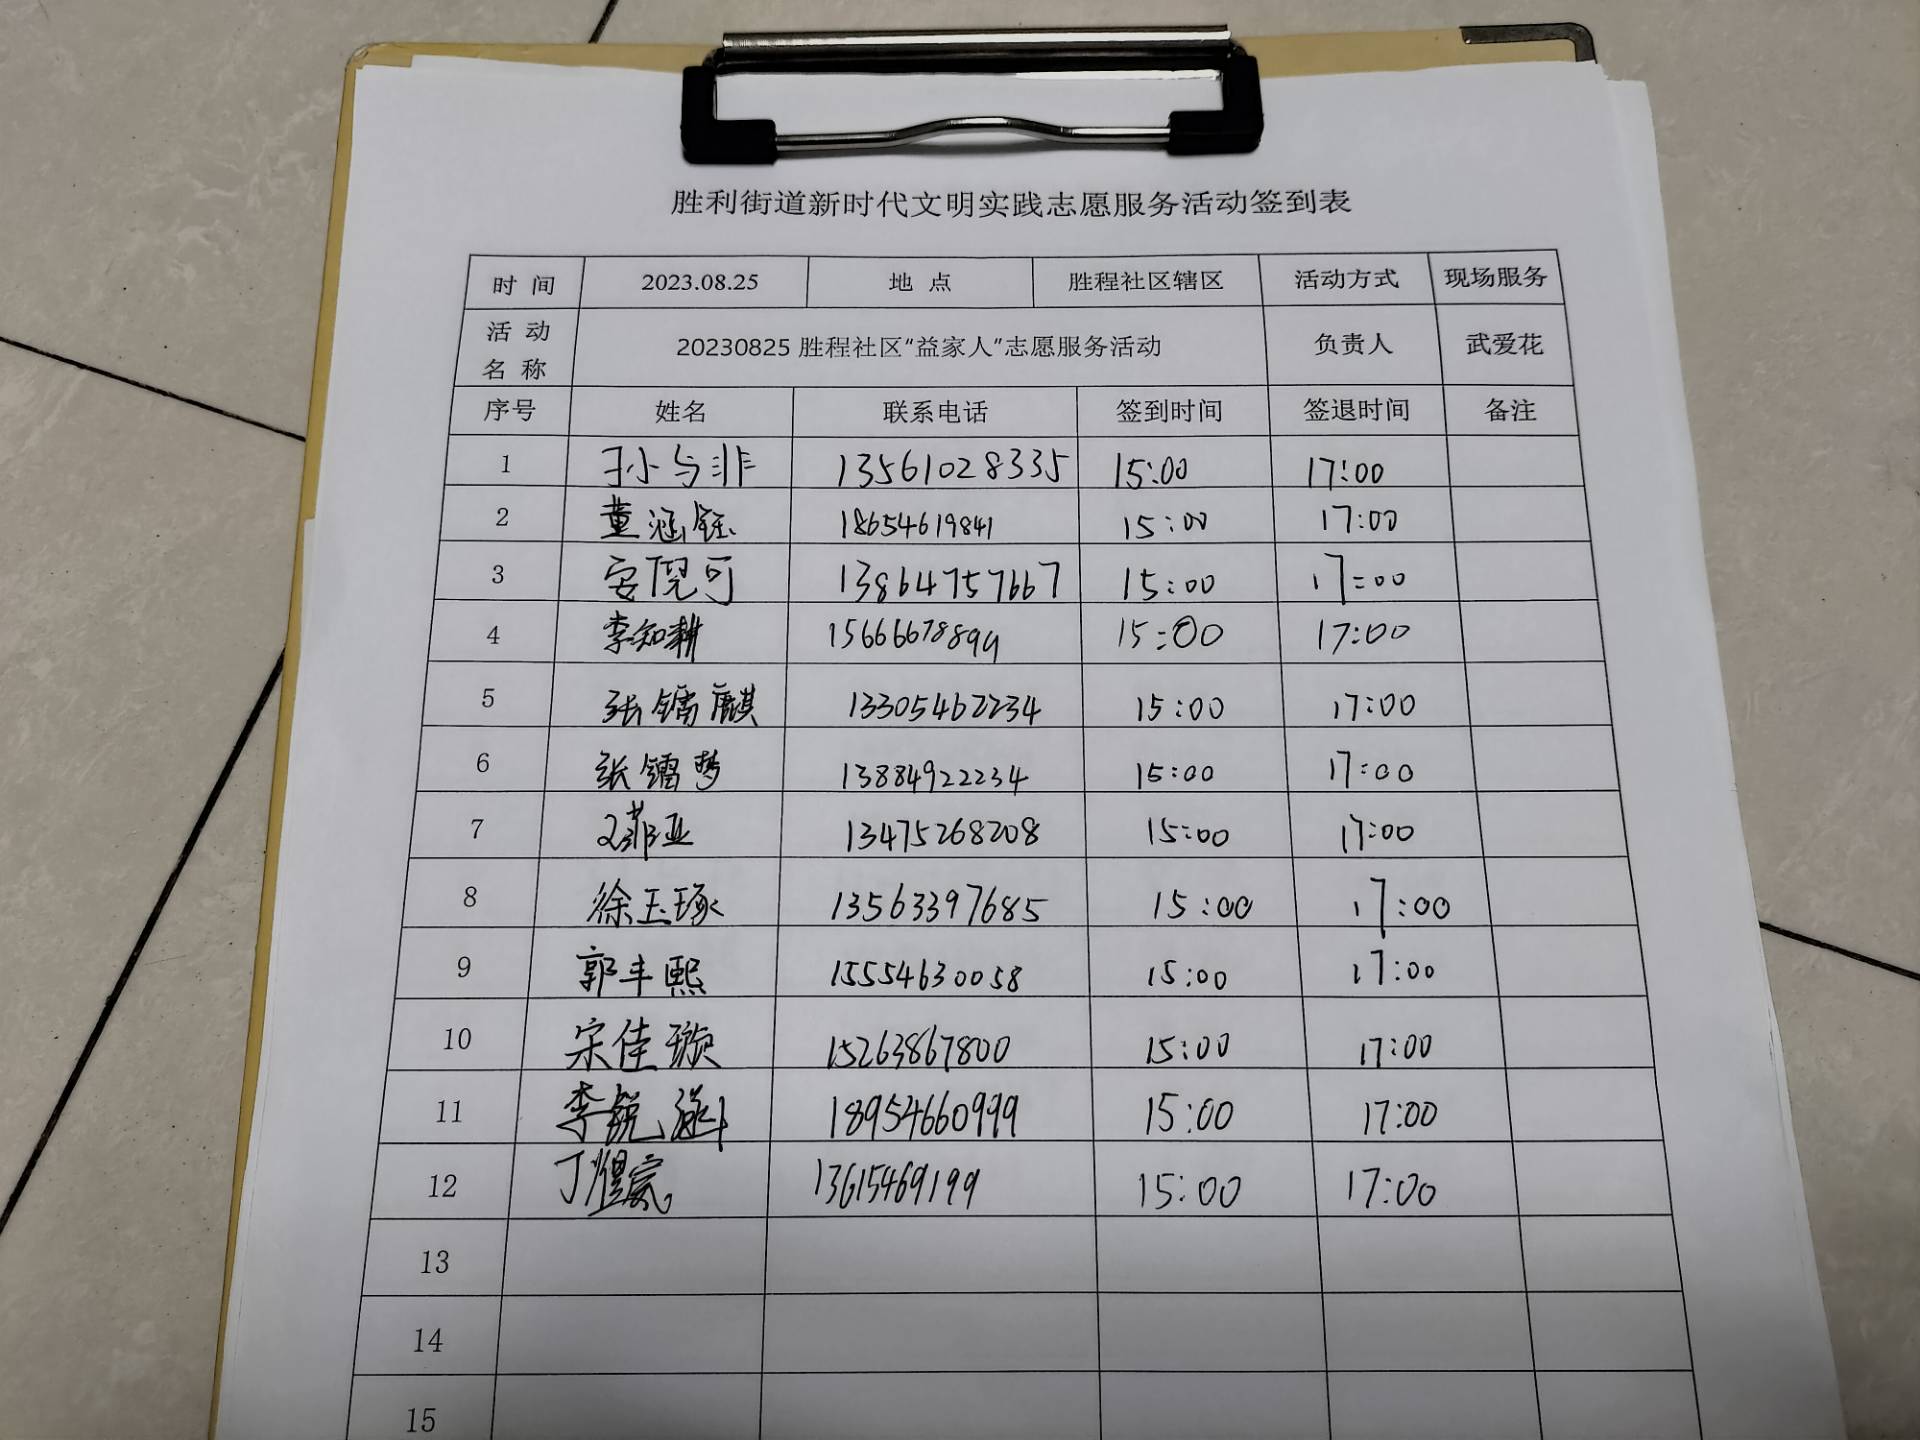 胜利街道新时代文明实践志愿服务活动签到表
时 间 2023.08.25 地 点 胜程社区辖区 活动方式 现场服务
活 动 名 称 20230825 胜程社区“益家人”志愿服务活动 负责人 武爱花
序号 姓名 联系电话 签到时间 签退时间 备注
1 孙与非 13561028335 15:00 17:00
2 董涵钰 18654619841 15:00 17:00
3 安倪可 13864757667 15:00 17:00
4 李知耕 15666678899 15:00 17:00
5 张镭麒 13305462234 15:00 17:00
6 张镭梦 13884922234 15:00 17:00
7 13475268208 15:00 17:00
8 徐玉琢 13563397685 15:00 17:00
9 郭丰熙 15554630058 15:00 17:00
10 宋佳璇 15263867800 15:00 17:00
11 李锐涵 18954660999 15:00 17:00
12 丁 13615469199 15:00 17:00
13
14
15